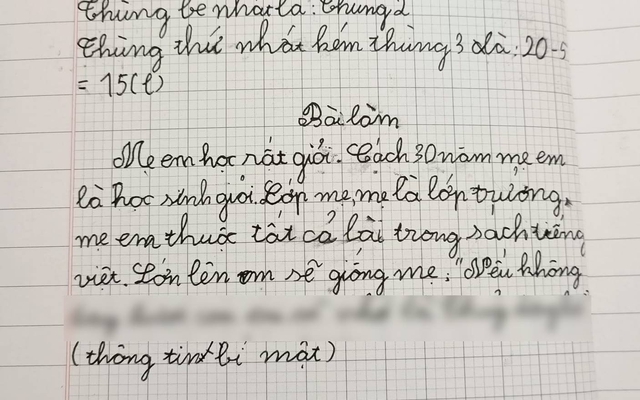 Thùng bé nhất là: Thùng 2
Thùng thứ nhất kém thùng 3 là: 20-5
= 15(l)
Bài làm
Mẹ em học rất giỏi. Cách 30 năm mẹ em
là học sinh giỏi. Lớp mẹ, mẹ là lớp trưởng,
mẹ em thuộc tất cả bài trong sach tiếng
việt. Lớn lên em sẽ giống mẹ. "Nếu không
(thông tin bí mật)